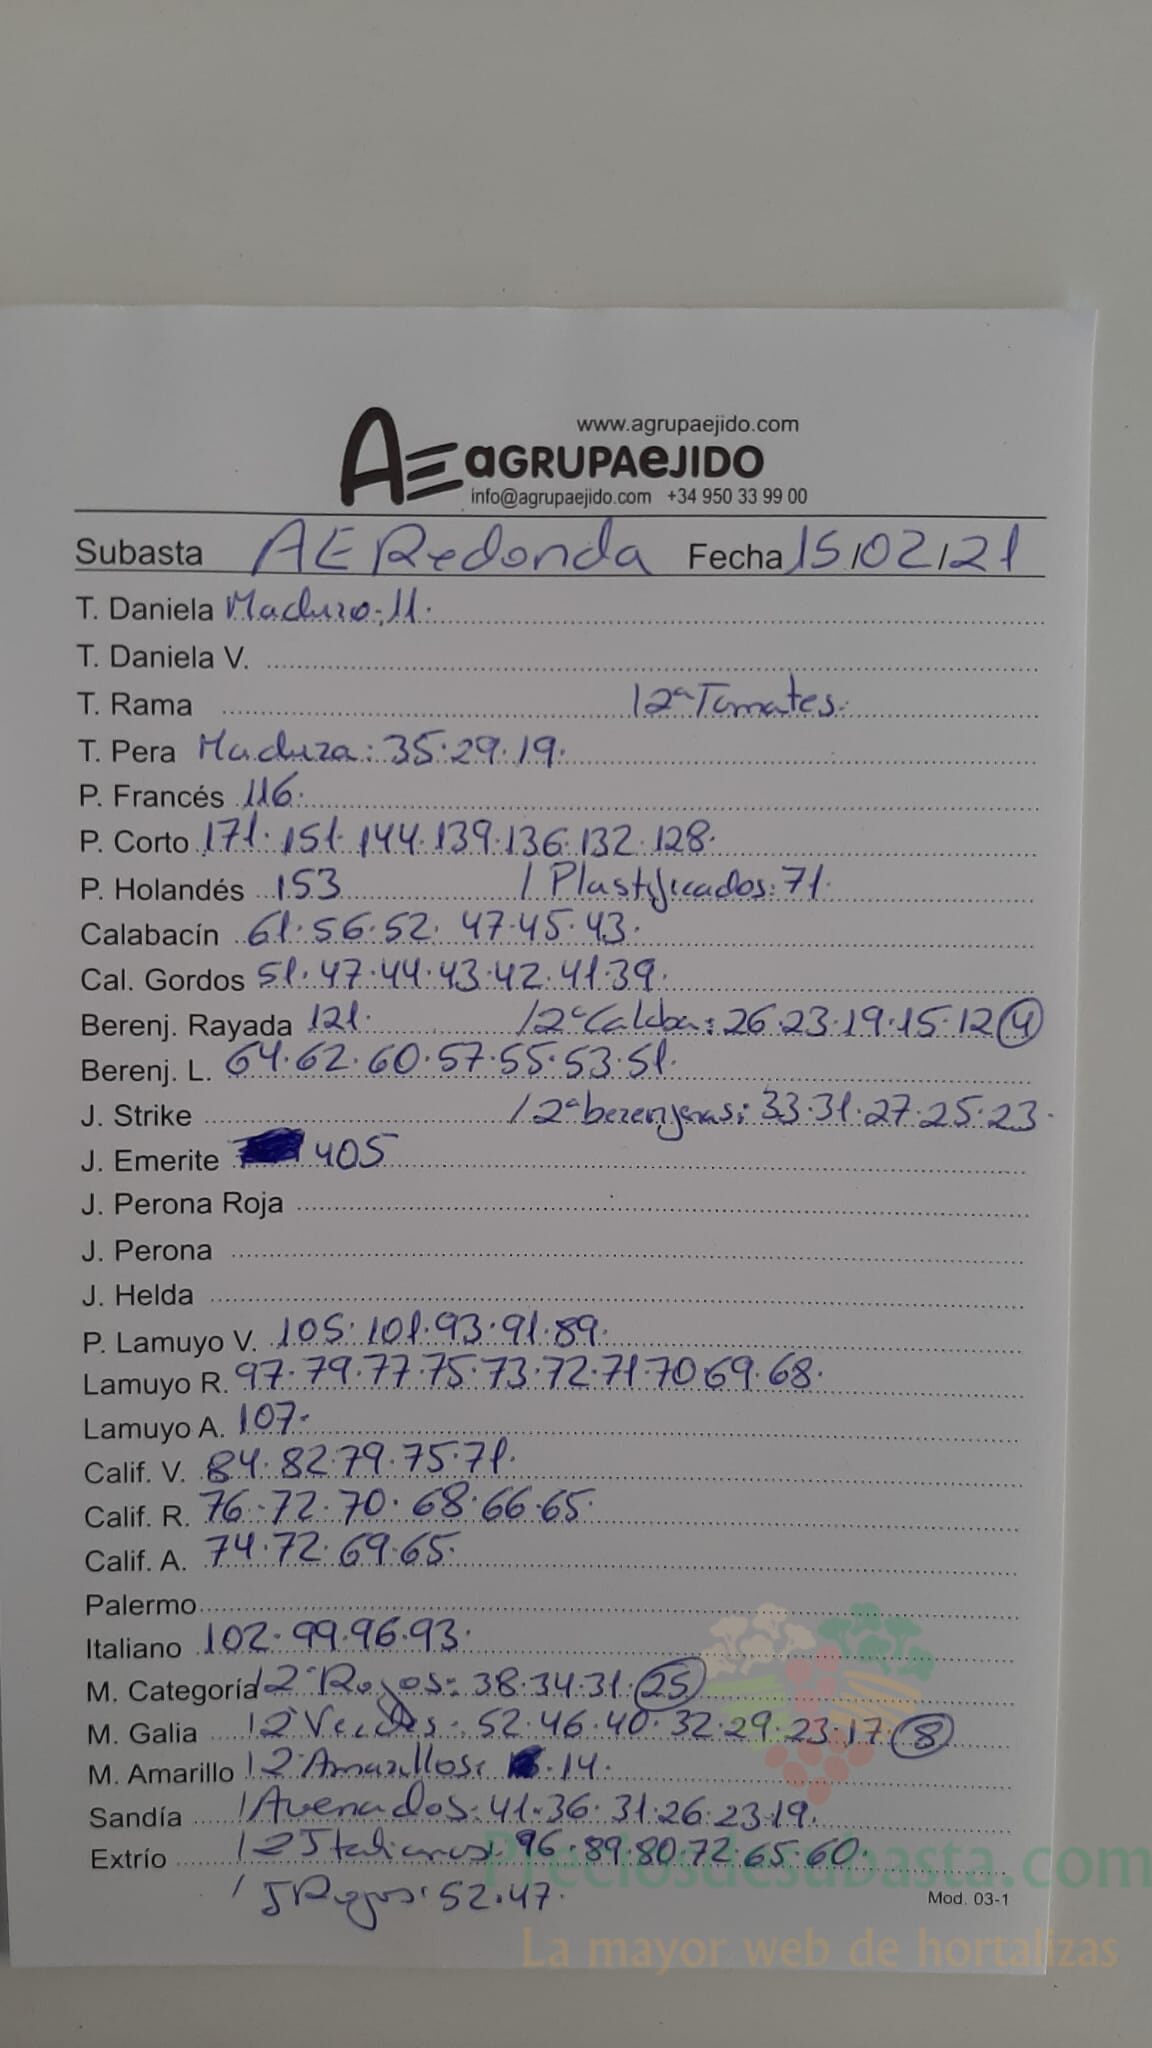 www.agrupaejido.com
AE aGRUPAeJIDO
info@agrupaejido.com +34 950 33 99 00
Subasta AE Redonda Fecha 15/02/21
T. Daniela Maduro: 11.
T. Daniela V.
T. Rama /2ª Tomates:
T. Pera Madura: 35.29.19.
P. Francés 116.
P. Corto 171. 151. 144. 139. 136. 132. 128.
P. Holandés 153 / Plastificados: 71.
Calabacín 61.56.52. 47.45.43.
Cal. Gordos 51.47.44.43.42.41.39.
Berenj. Rayada 121. /2ª Calaba: 26.23.19.15.12 (4)
Berenj. L. 64.62.60.57.55.53.51.
J. Strike /2ª berenjenas: 33.31.27.25.23.
J. Emerite 405
J. Perona Roja
J. Perona
J. Helda
P. Lamuyo V. 105. 101.93.91.89.
Lamuyo R. 97.79.77.75.73.72.71.70 69.68.
Lamuyo A. 107.
Calif. V. 84.82.79.75.71.
Calif. R. 76.72.70. 68.66.65.
Calif. A. 74.72.69.65.
Palermo
Italiano 102.99.96.93.
M. Categoría /2ª Rojos: 38.34.31. (25)
M. Galia /2 Verdes: 52.46.40.32.29.23.17. (8)
M. Amarillo /2 Amarillos: .14.
Sandía / Avenados: 41.36.31.26.23.19.
Extrío /2 Italianos: 96.89.80.72.65.60.
/ J Rojos: 52.47.
Mod. 03-1
Preciosdesubasta.com
La mayor web de hortalizas